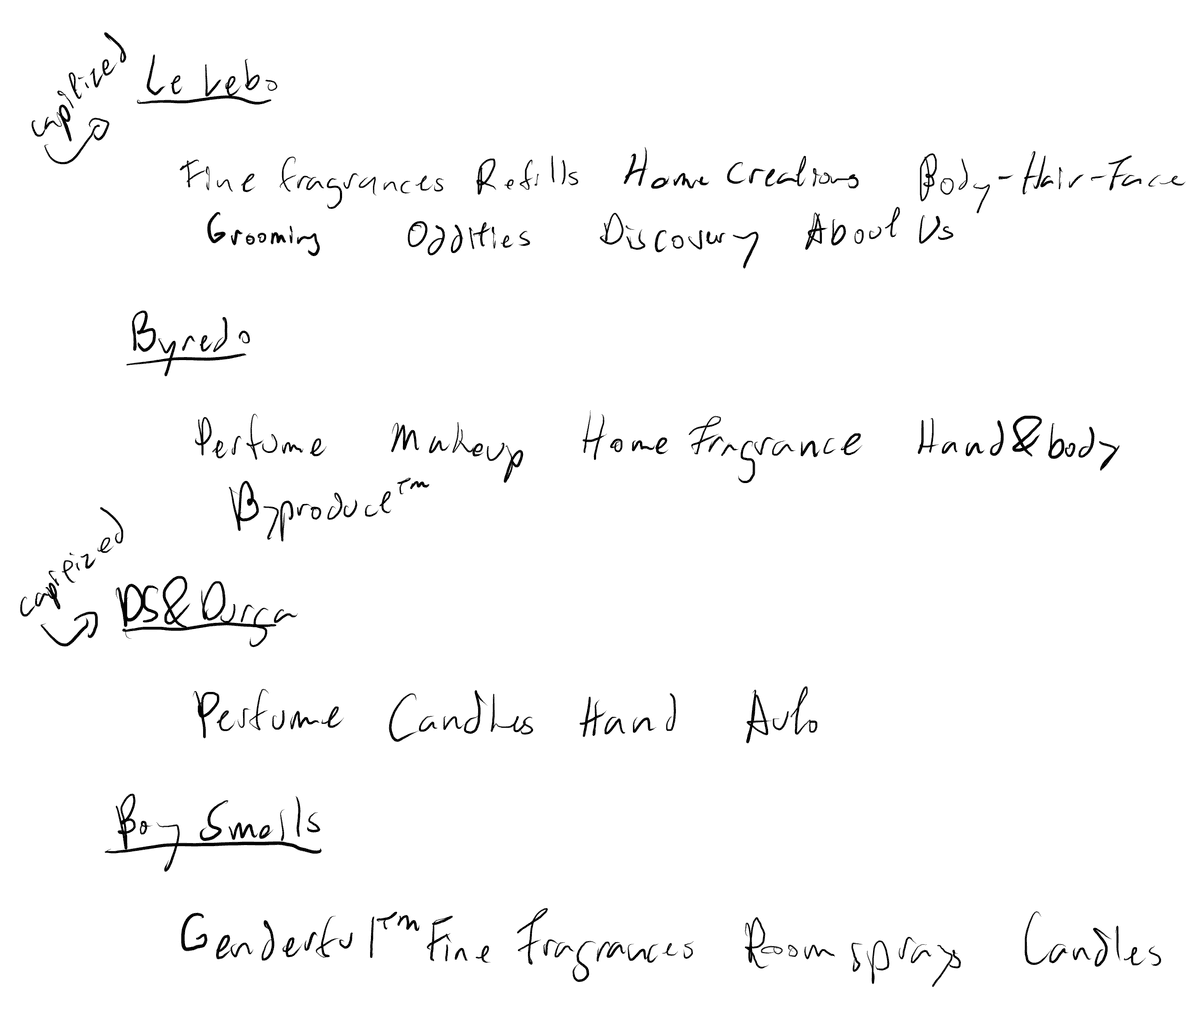 capilized
Le Lebo
Fine fragrances Refills Home Creations Body-Hair-Face
Grooming Oddities Discovery About Us
Byredo
Perfume Makeup Home Fragrance Hand&body
Byproduct™
capilized
DS&Durga
Perfume Candles Hand Auto
Boy Smells
Genderful™ Fine Fragrances Room sprays Candles